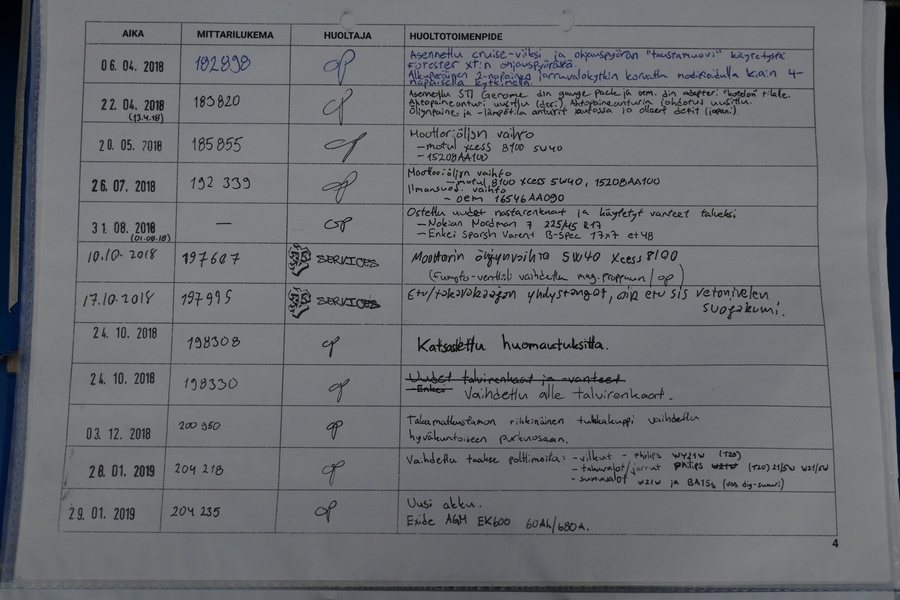 AIKA MITTARILUKEMA HUOLTAJA HUOLTOTOIMENPIDE
06. 04. 2018 182898 op Asennettu cruise-viiksi ja ohjauspyörän "taustamuovi" käytetystä
Forester XT:n ohjauspyörästä.
Alkuperäinen 2-napainen jarruvalokytkin korvattu modifioidulla k.a:n 4-
napaisella kytkimellä.
22. 04. 2018 183820 op Asennettu STI Genome din gauge pack ja oem. din adapteri "kotelon" tilalle.
(13.4.18) Ahtopaineanturi uusittu (defi). Ahtopaineanturin johdotus uusittu.
Öljynpaine ja -lämpötila anturit autossa jo olleet defit (japani).
20. 05. 2018 185855 op Moottoriöljyn vaihto
- motul xcess 8100 5W40
- 15208AA100
26. 07. 2018 192 339 op Moottoriöljyn vaihto
- motul 8100 xcess 5W40, 15208AA100
Ilmansuod. vaihto
- oem 16546AA090
31. 08. 2018 — op Ostettu uudet nastarenkaat ja käytetyt vanteet talveksi
(01.09.18) - Nokian Nordman 7 225/45 R17
- Enkei Sparsh Varent B-Spec 17x7 et48
10.10.2018 197607 SERVICES Moottorin öljynvaihto 5W40 Xcess 8100
(Fumoto-venttiili vaihdettu mag. proppuun / op)
17.10.2018 197995 SERVICES Etu/takavakaajan yhdystangot, oik etu sis vetonivelen
suojakumi.
24. 10. 2018 198308 op Katsastettu huomautuksitta.
24. 10. 2018 198330 op Uudet talvirenkaat ja -vanteet
- Enkei Vaihdettu alle talvirenkaat.
03. 12. 2018 200 950 op Takamatkustamon rikkinäinen tuhkakuppi vaihdettu
hyväkuntoiseen purkuosaan.
28. 01. 2019 204 218 op Vaihdettu taakse polttimoita: - vilkut - philips WY21W (T20)
- takavalot/jarrut philips W21W (T20) 21/5W W21/5W
- sumuvalot W21W ja BA15s
29. 01. 2019 204 235 op Uusi akku.
Exide AGM EK600 60Ah/680A.
4